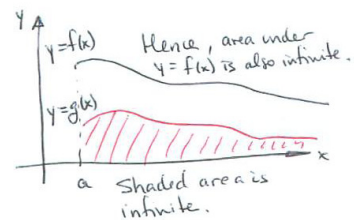 y
y=f(x)
Hence, area under
y=f(x) is also infinite.
y=g(x)
x
a
Shaded area is
infinite.